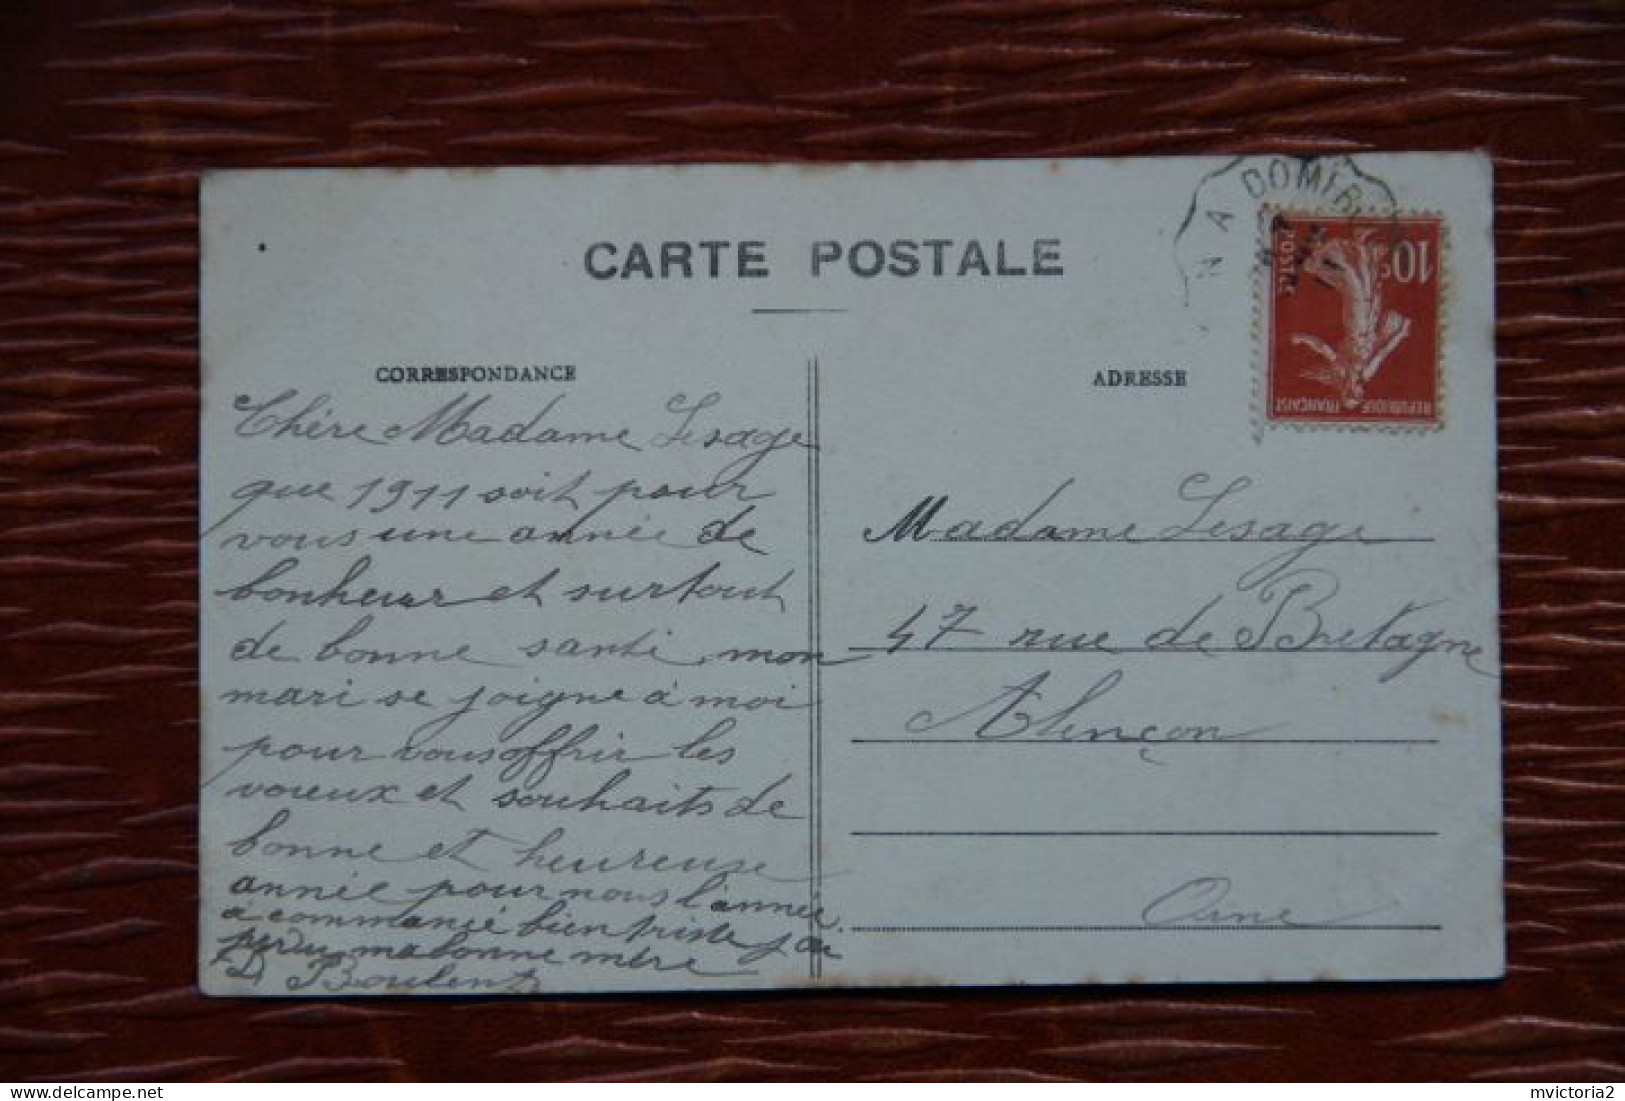 CARTE POSTALE
N A DOMFR
CORRESPONDANCE
ADRESSE
10
POSTES
REPUBLIQUE FRANÇAISE
Chère Madame Lesage
que 1911 soit pour
vous une année de
bonheur et surtout
de bonne santé, mon
mari se joigne à moi
pour vous offrir les
voeux et souhaits de
bonne et heureuse
année pour nous l'année
à commancé bien triste j'ai
perdu ma bonne mère
Boulent
Madame Lesage
47 rue de Bretagne
Alençon
Orne
mvictoria2